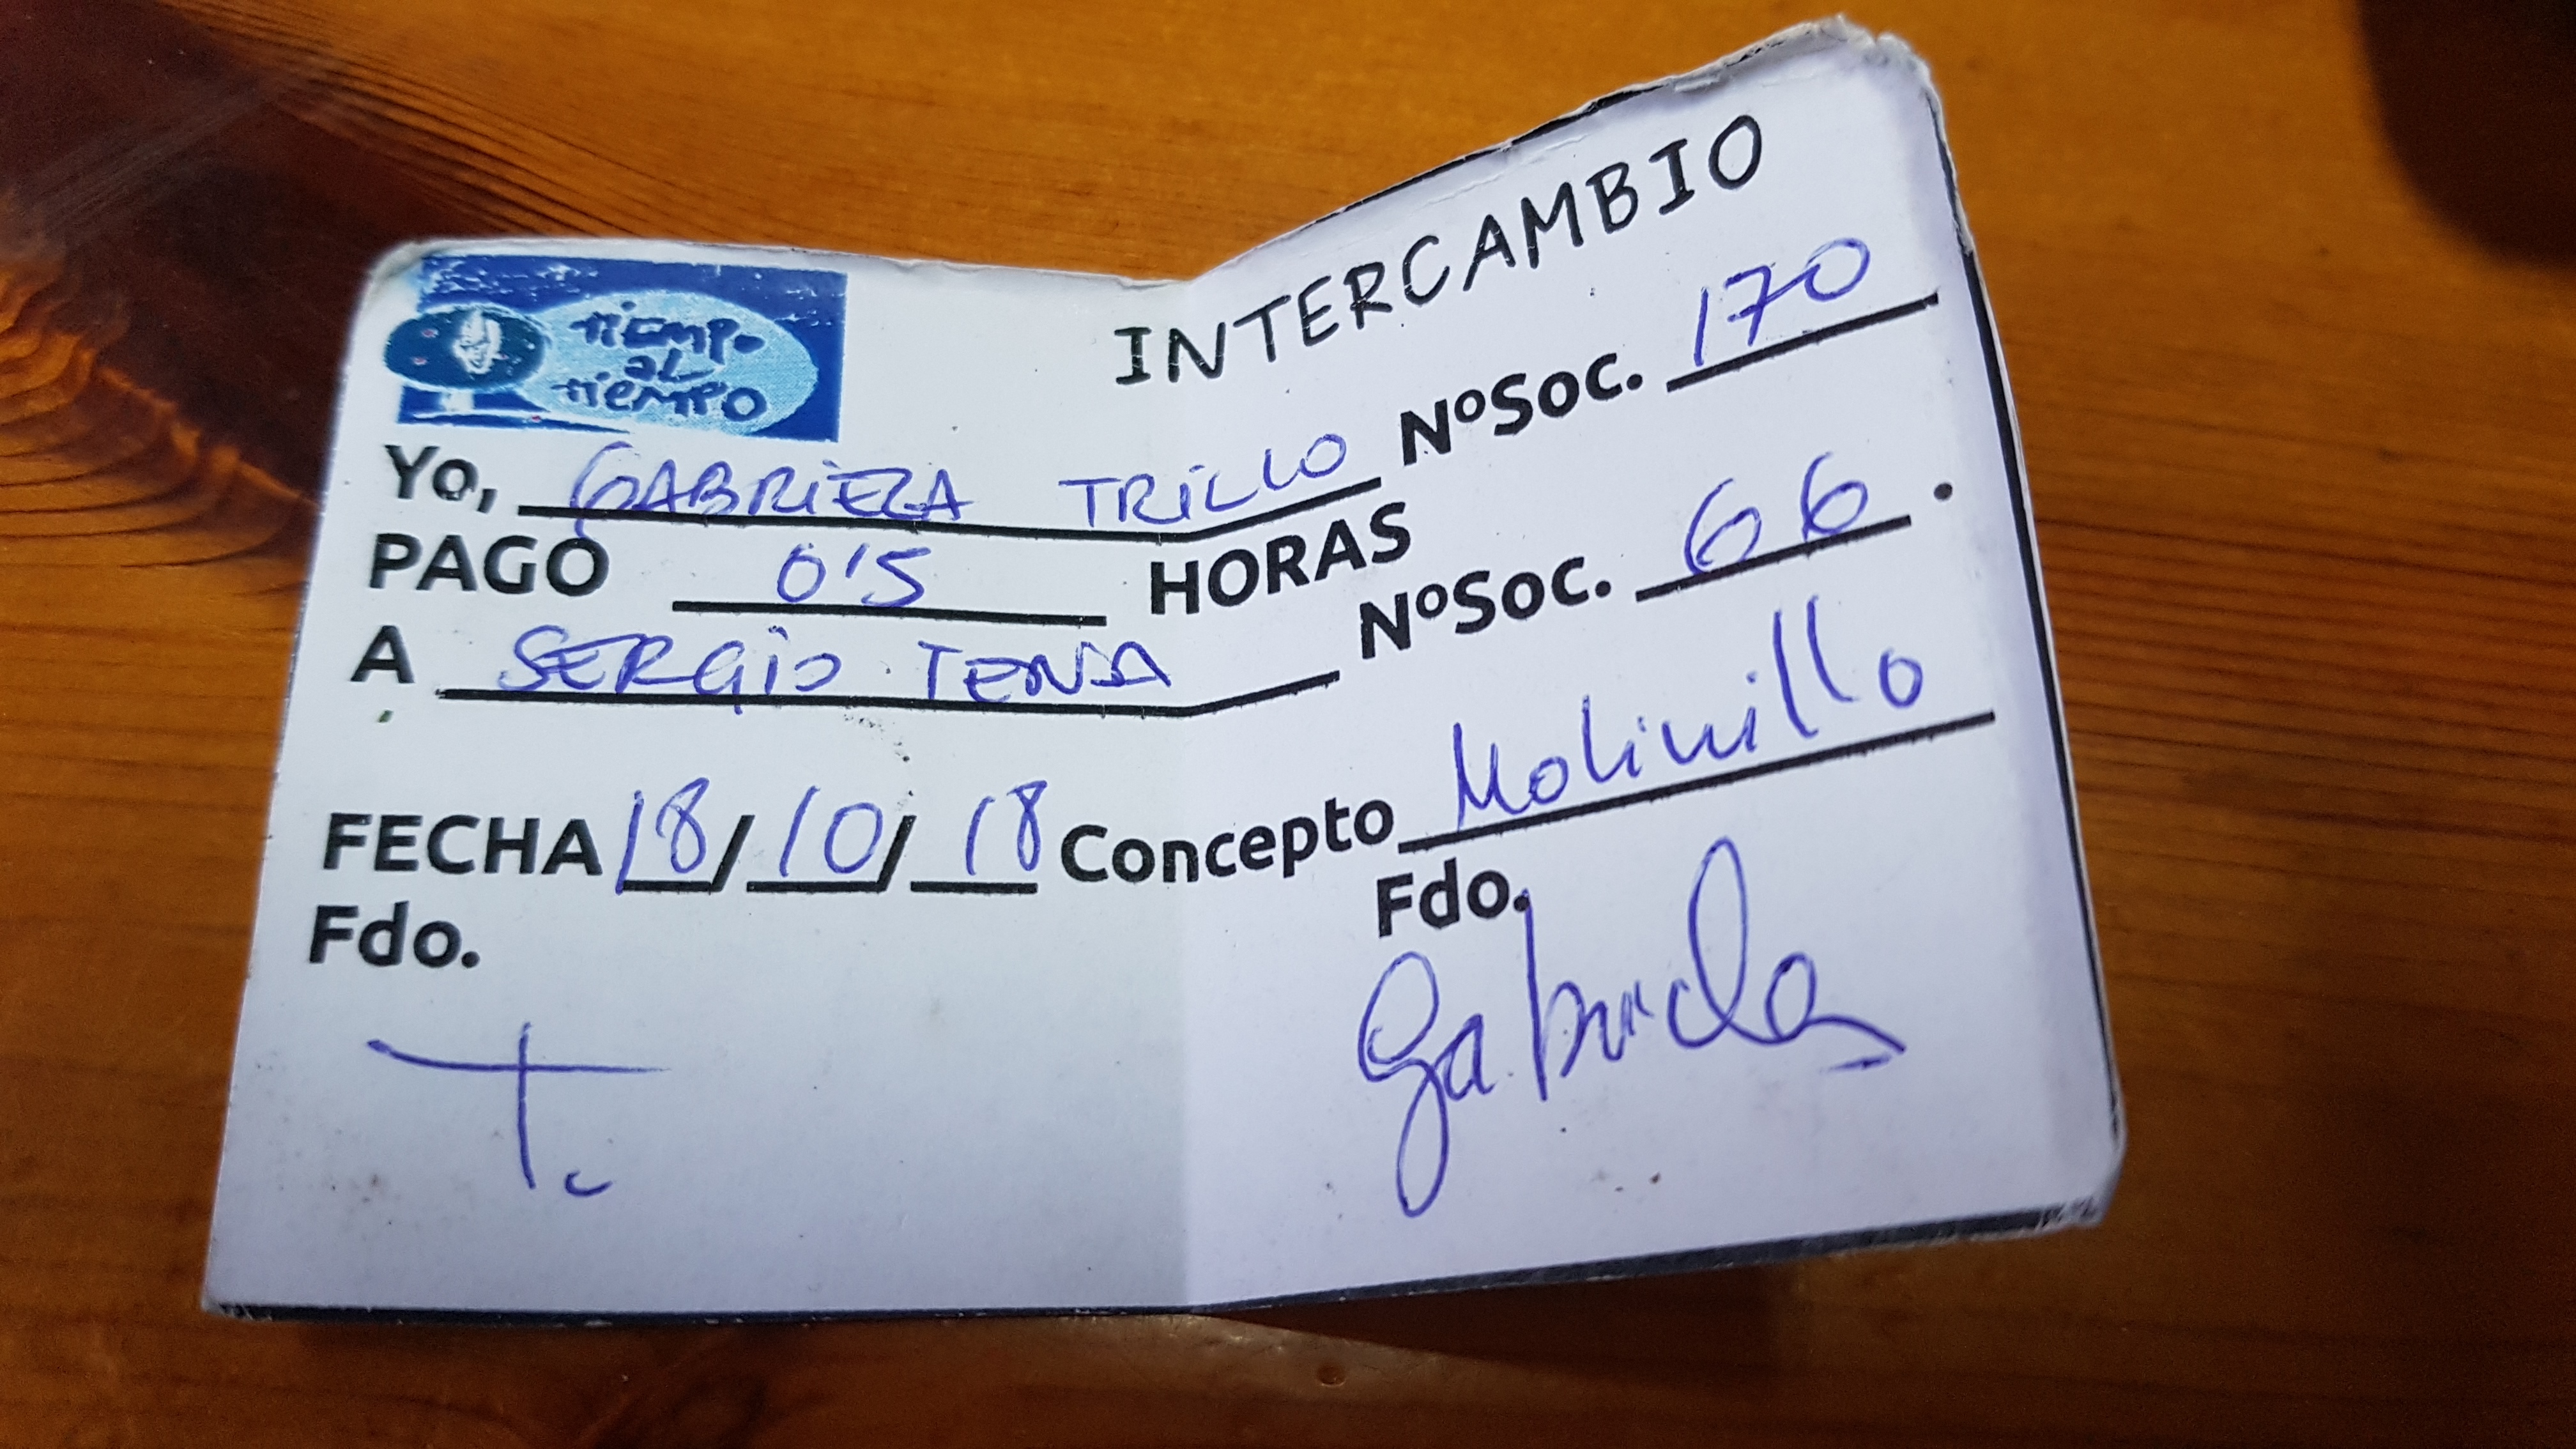 INTERCAMBIO
tiempo
al
tiempo
Yo, GABRIELA TRILLO NºSoc. 170
PAGO 0'5 HORAS
A SERGIO TENA NºSoc. 66.
FECHA 18/10/18 Concepto Molinillo
Fdo. Fdo.
T. Gabriela